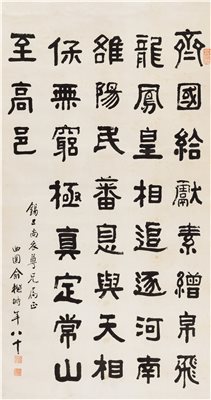 齊國給獻素繒帛飛
龍鳳皇相追逐河南
雒陽民蕃息與天相
保無窮極真定常山
至高邑
尚衣尊兄属正
曲園俞樾時年八十